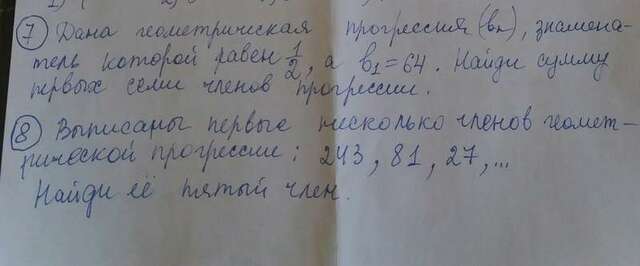 7 Дана геометрическая прогрессия (bn), знамена-
тель которой равен 1/2, а b1=64. Найди сумму
первых семи членов прогрессии.
8 Выписаны первые несколько членов геомет-
рической прогрессии: 243, 81, 27,...
Найди её пятый член.